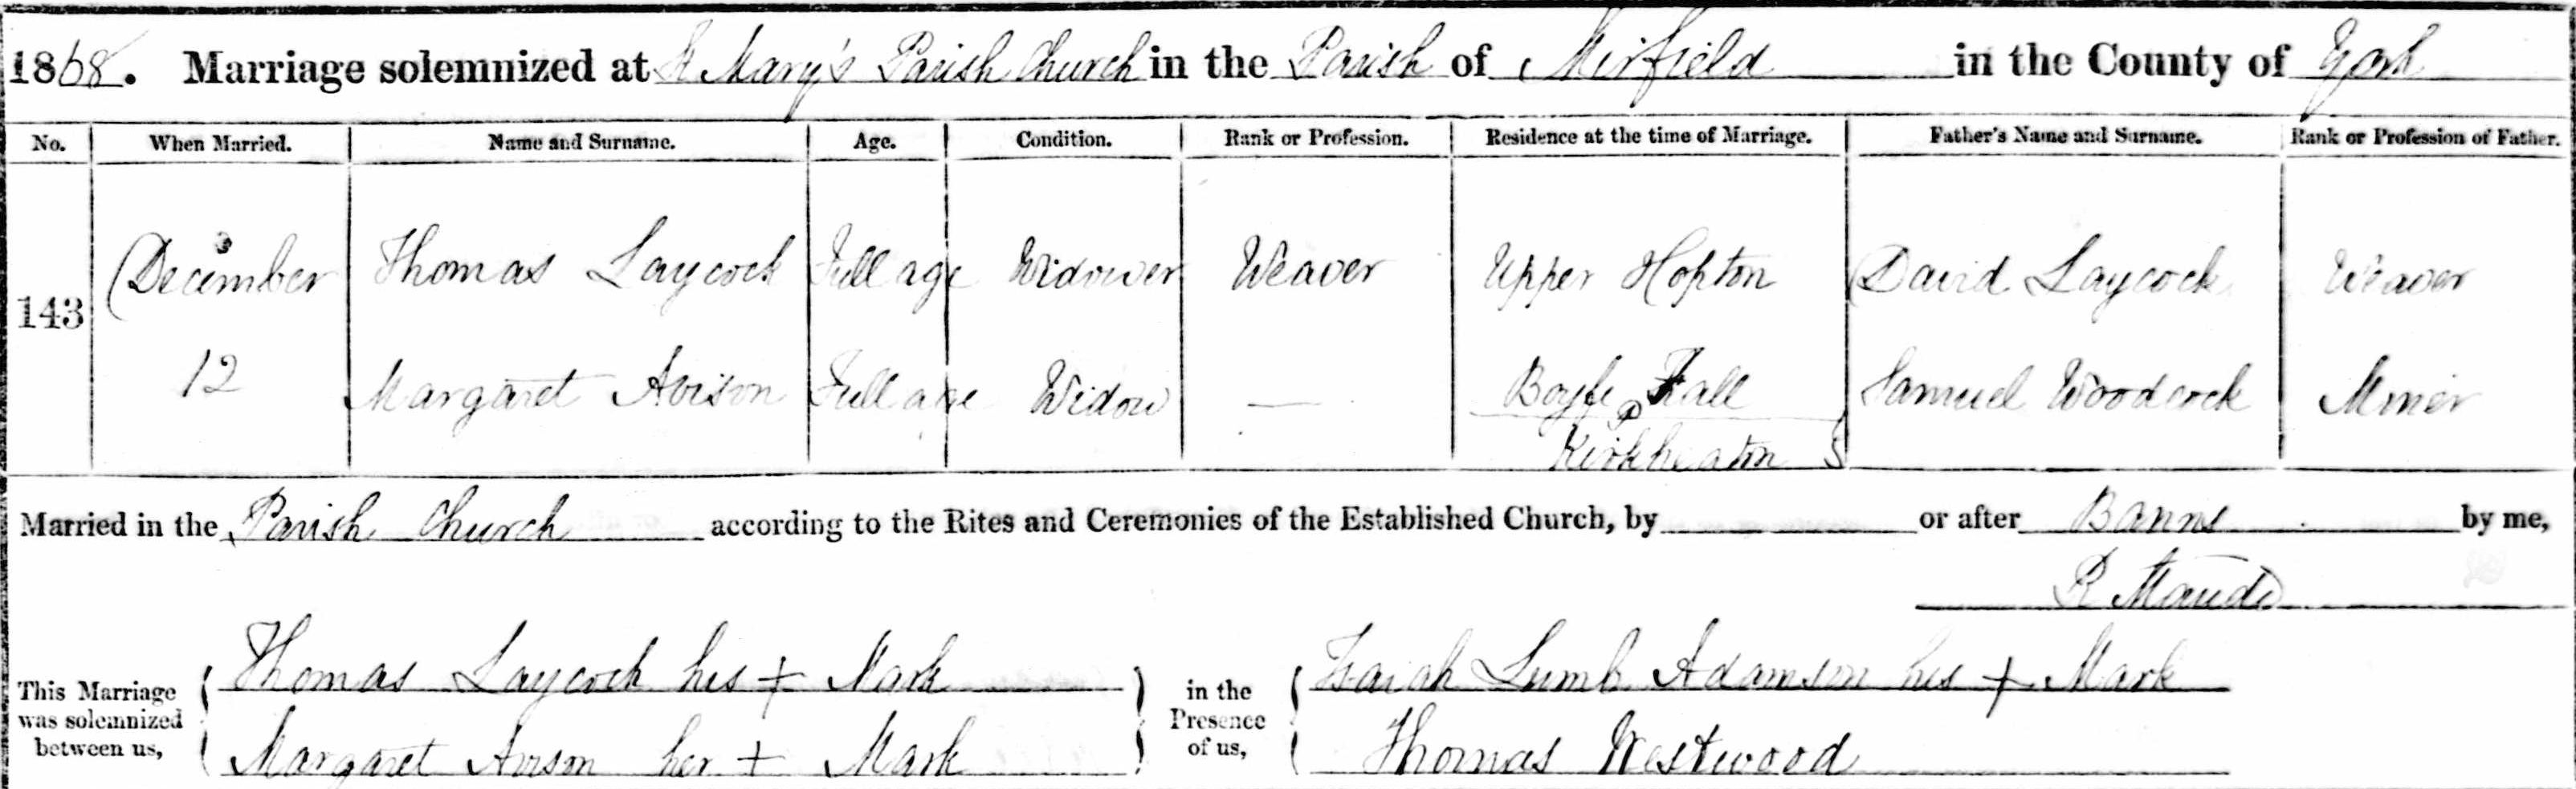 1868. Marriage solemnized at St Mary's Parish Church in the Parish of Mirfield in the County of York
No. When Married. Name and Surname. Age. Condition. Rank or Profession. Residence at the time of Marriage. Father's Name and Surname. Rank or Profession of Father.
December Thomas Laycock Full age Widower Weaver Upper Hopton David Laycock Weaver
143
12 Margaret Avison Full age Widow — Hall Samuel Woodcock Miner
Kirkheaton
Married in the Parish Church according to the Rites and Ceremonies of the Established Church, by or after Banns by me,
R Maude
This Marriage was solemnized between us,
Thomas Laycock his + Mark
Margaret Avison her + Mark
in the Presence of us,
Isaiah Lumb Adamson his + Mark
Thomas Westwood